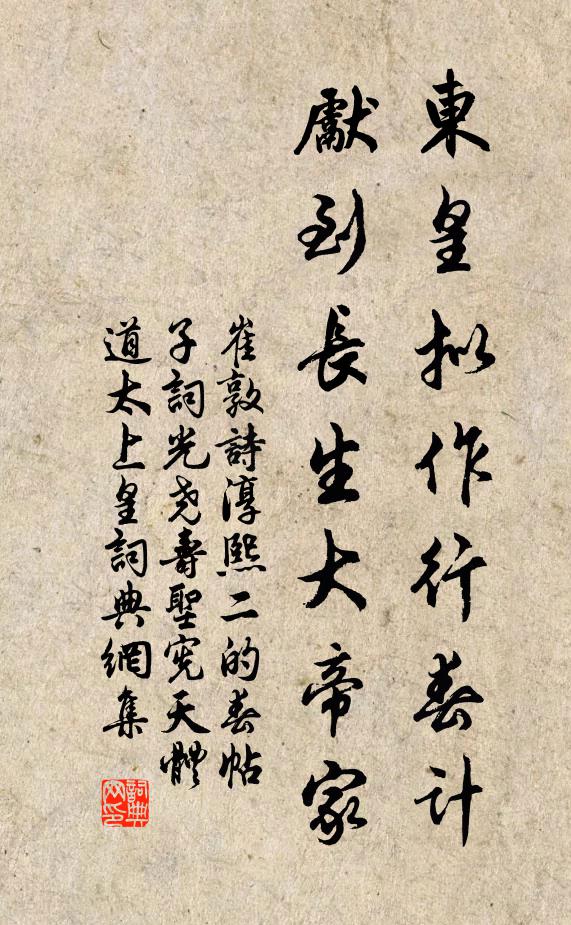 東皇拟作行春計
獻到長生大帝家
崔敦詩淳熙二的春帖
子詞光尧壽聖宪天體
道太上皇詞典網集
詞典
网印